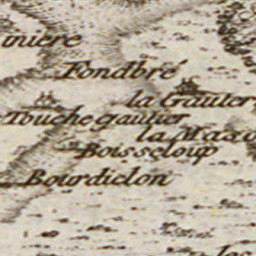 iniere
Fondbré
la Gauter
Touchegautier
la Maso
Boisseloup
Bourdiclon
les